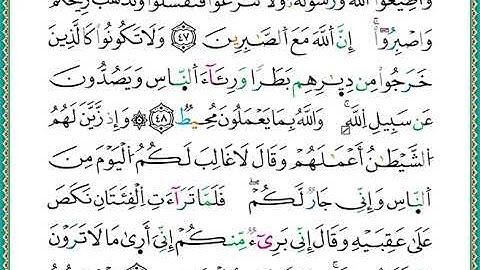 وَأَطِيعُوا۟ ٱللَّهَ وَرَسُولَهُۥ وَلَا تَنَٰزَعُوا۟ فَتَفْشَلُوا۟ وَتَذْهَبَ رِيحُكُمْ
وَٱصْبِرُوٓا۟ ۚ إِنَّ ٱللَّهَ مَعَ ٱلصَّٰبِرِينَ ٤٧ وَلَا تَكُونُوا۟ كَٱلَّذِينَ
خَرَجُوا۟ مِن دِيَٰرِهِم بَطَرًا وَرِئَآءَ ٱلنَّاسِ وَيَصُدُّونَ
عَن سَبِيلِ ٱللَّهِ ۚ وَٱللَّهُ بِمَا يَعْمَلُونَ مُحِيطٌ ٤٨ ۞ وَإِذْ زَيَّنَ لَهُمُ
ٱلشَّيْطَٰنُ أَعْمَٰلَهُمْ وَقَالَ لَا غَالِبَ لَكُمُ ٱلْيَوْمَ مِنَ
ٱلنَّاسِ وَإِنِّى جَارٌ لَّكُمْ ۖ فَلَمَّا تَرَآءَتِ ٱلْفِئَتَانِ نَكَصَ
عَلَىٰ عَقِبَيْهِ وَقَالَ إِنِّى بَرِىٓءٌ مِّنكُمْ إِنِّىٓ أَرَىٰ مَا لَا تَرَوْنَ